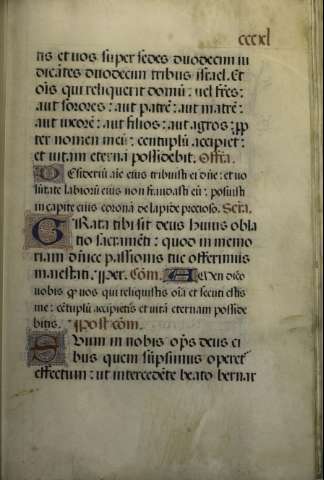 cccxl
tis et uos super sedes duodecim iu
dicātes duodecim tribus israel. Et
oīs qui reliquerit domū: uel frēs:
aut sorores: aut patrē: aut matrē:
aut uxorē: aut filios: aut agros: ꝓp̄
ter nomen meū: centuplū accipiet:
et uitam eternā possidebit. Offer̄a.
Desideriū aīe eius tribuisti ei dn̄e: et uo
lūtate labiorū eius non fraudasti eū: posuisti
in capite eius coronā de lapide precioso. Secr̄a.
Grata tibi sit deus huius obla
tio sacramēti: quod in memo
riam diuīe passionis tue offerimus
maiestati. ꝑ. Cōm. Amen dico
uobis ꝙ uos qui reliquistis oīa et secuti estis
me: cētuplū accipietis et uitā eternam posside
bitis. Post cōm.
Suum in nobis op̄s deus ci
bus quem sūpsimus operet᷑
effectum: ut intercedēte beato bernar